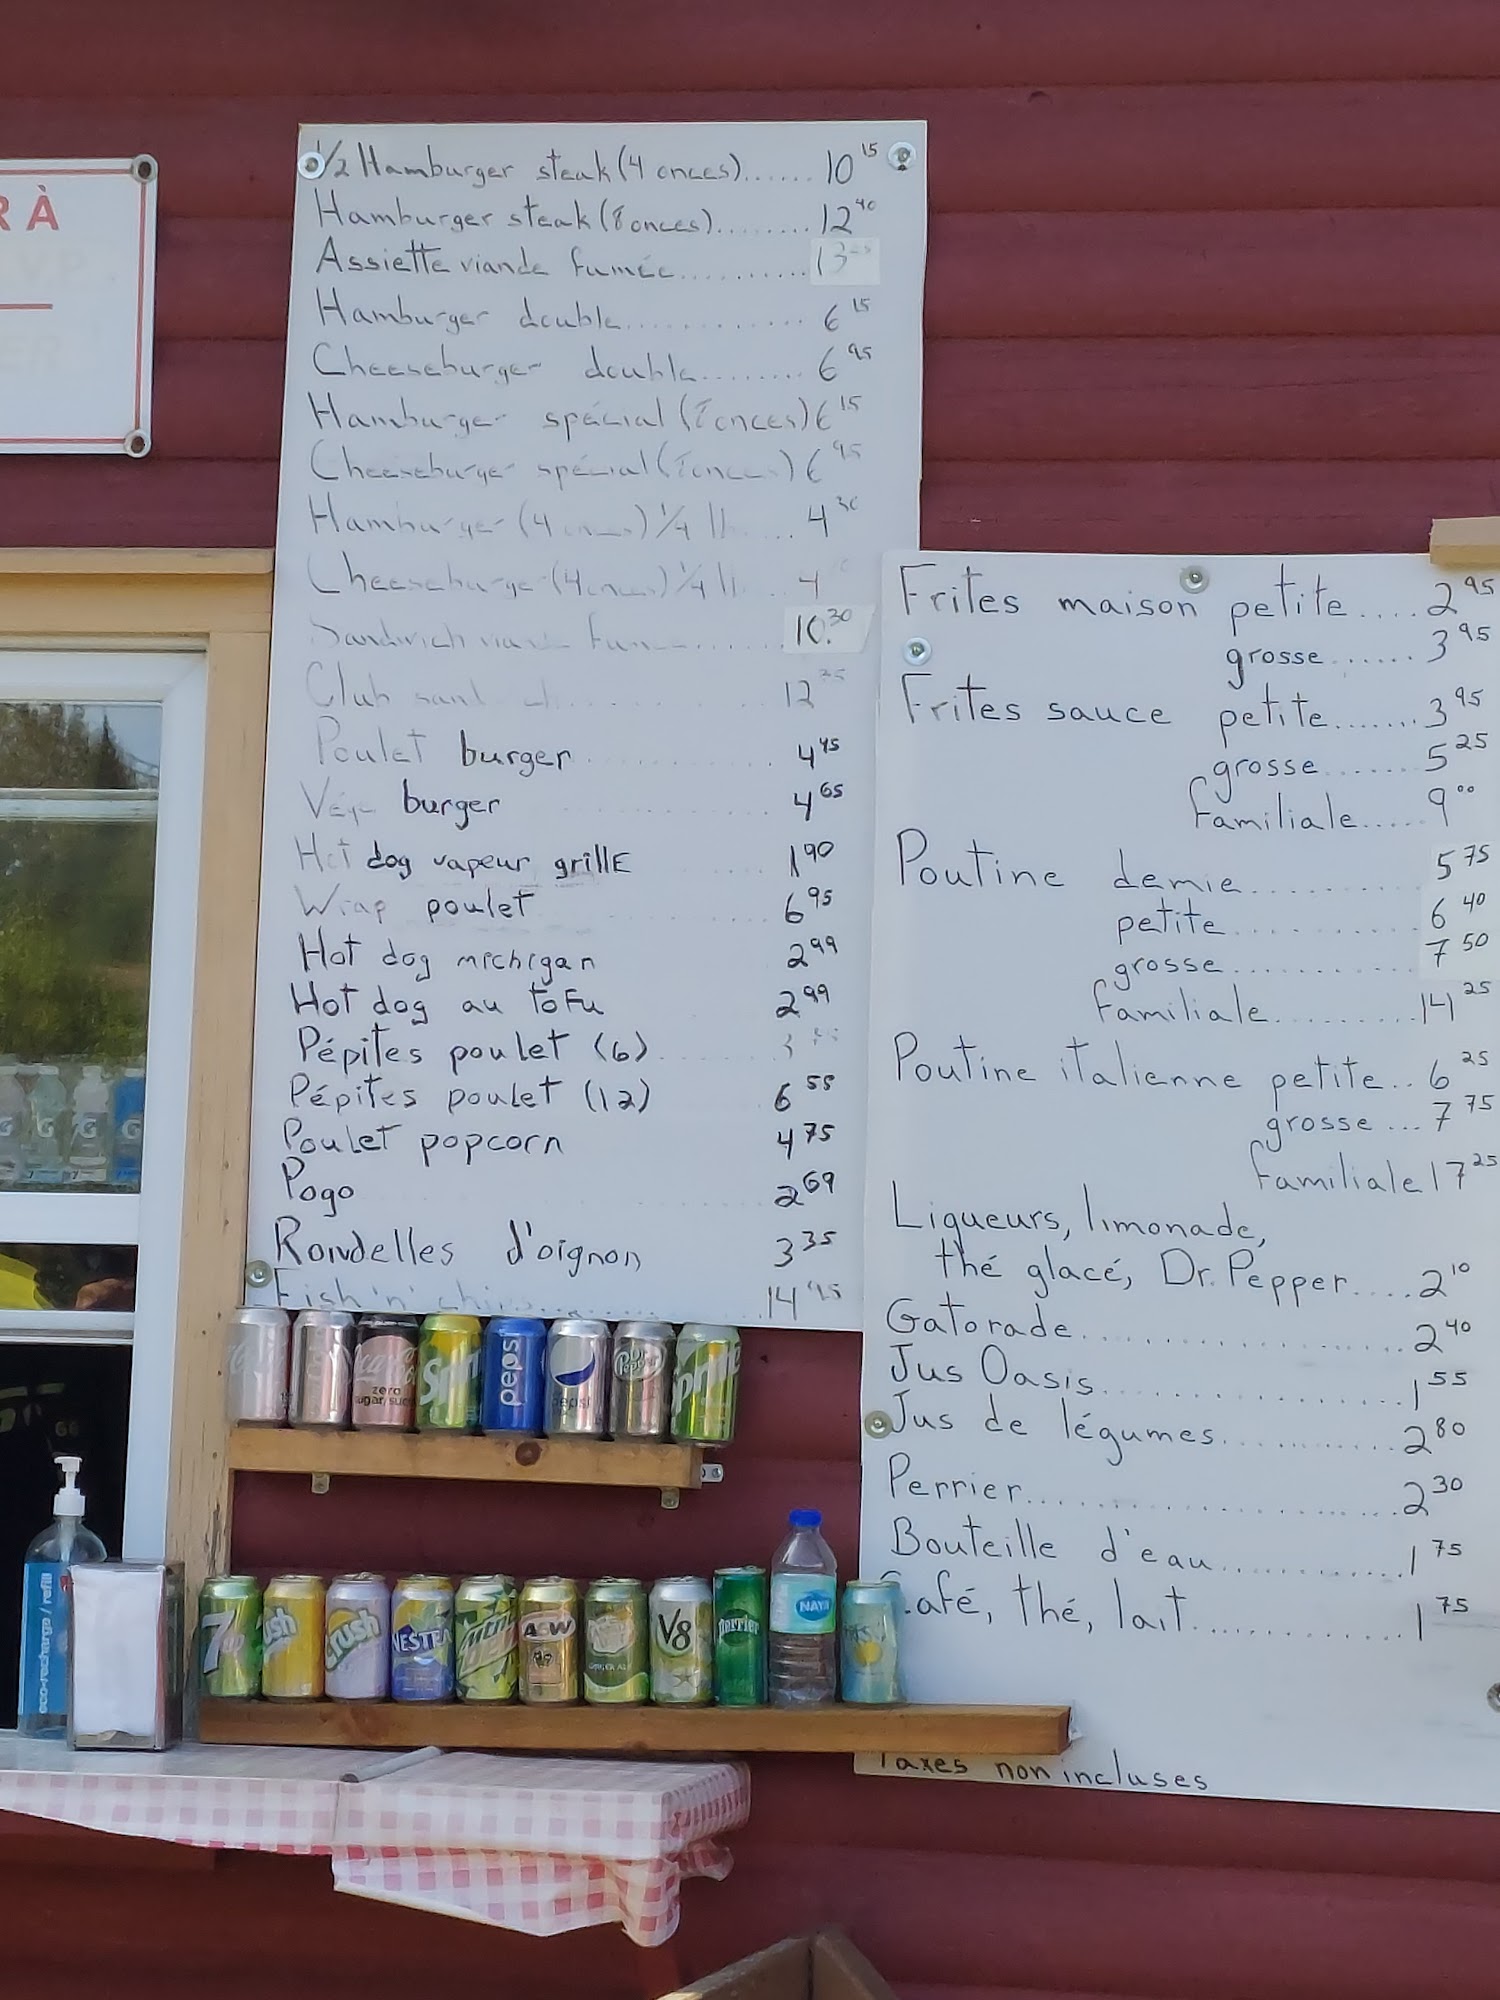 R À
1/2 Hamburger steak (4 onces)....... 10 15
Hamburger steak (8 onces)......... 12 40
Assiette viande fumée........... 13
Hamburger double............. 6 15
Cheeseburger double......... 6 95
Hamburger spécial (8 onces) 6 15
Cheeseburger spécial (8 onces) 6 95
Hamburger (4 onces) 1/4 lb.... 4 30
Cheeseburger (4 onces) 1/4 lb... 4
Sandwich viande fumée........ 10.30
Club sandwich........ 12
Poulet burger............ 4 45
Végé burger............ 4 65
Hot dog vapeur grillE 1 90
Wrap poulet 6 95
Hot dog michigan 2 99
Hot dog au toFu 2 99
Pépites poulet (6) 3
Pépites poulet (12) 6 55
PouLet popcorn 4 75
Pogo 2 69
Rondelles d'oignon 3 35
Fish 'n' chips............ 14 95
Frites maison petite.... 2 95
grosse....... 3 95
Frites sauce petite....... 3 95
grosse........ 5 25
familiale..... 9 00
Poutine demie............ 5 75
petite........... 6 40
grosse............ 7 50
familiale......... 14 25
Poutine italienne petite.. 6 25
grosse... 7 75
familiale 17 25
Liqueurs, limonade,
thé glacé, Dr. Pepper.... 2 10
Gatorade.............. 2 40
Jus Oasis.............. 1 55
Jus de légumes........... 2 80
Perrier.................... 2 30
Bouteille d'eau............ 1 75
Café, thé, lait............. 1 75
Taxes non incluses
zero
sugar/sucre
Sprite
pepsi
pepsi
Dr Pepper
Sprite
eco-recharge / refill
7up
Crush
Crush
NESTEA
Mtn Dew
A&W
V8
Perrier
NAYA